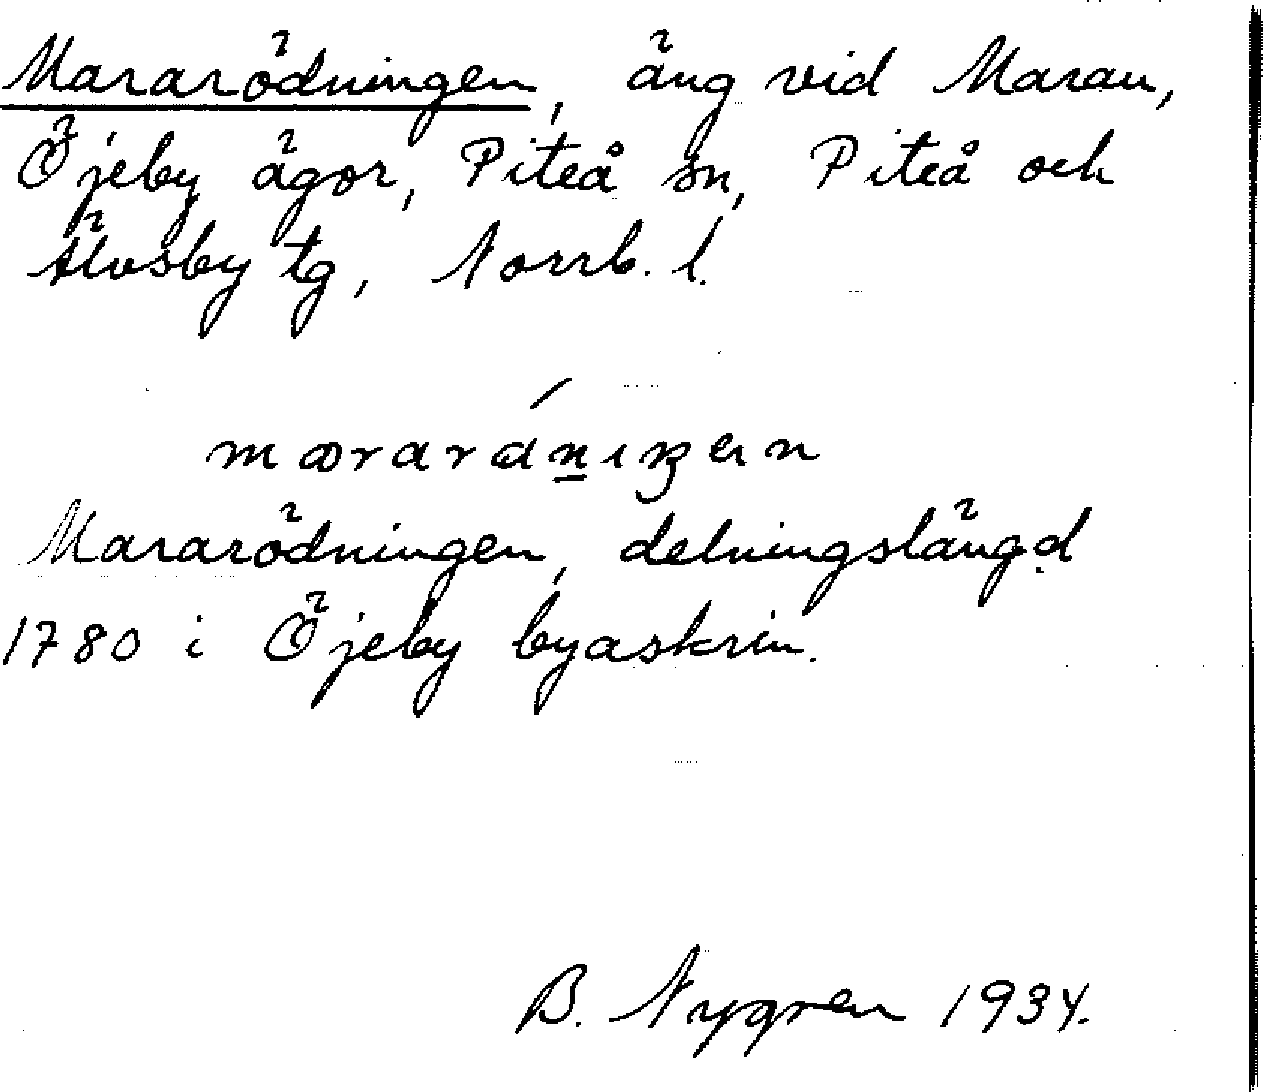 Mararödningen, äng vid Maran,
Öjeby ägor, Piteå sn, Piteå och
Älvsby tg, Norrb. l.
Mararödningen, delningslängd
1780 i Öjeby byaskrin.
B. Nygren 1934.